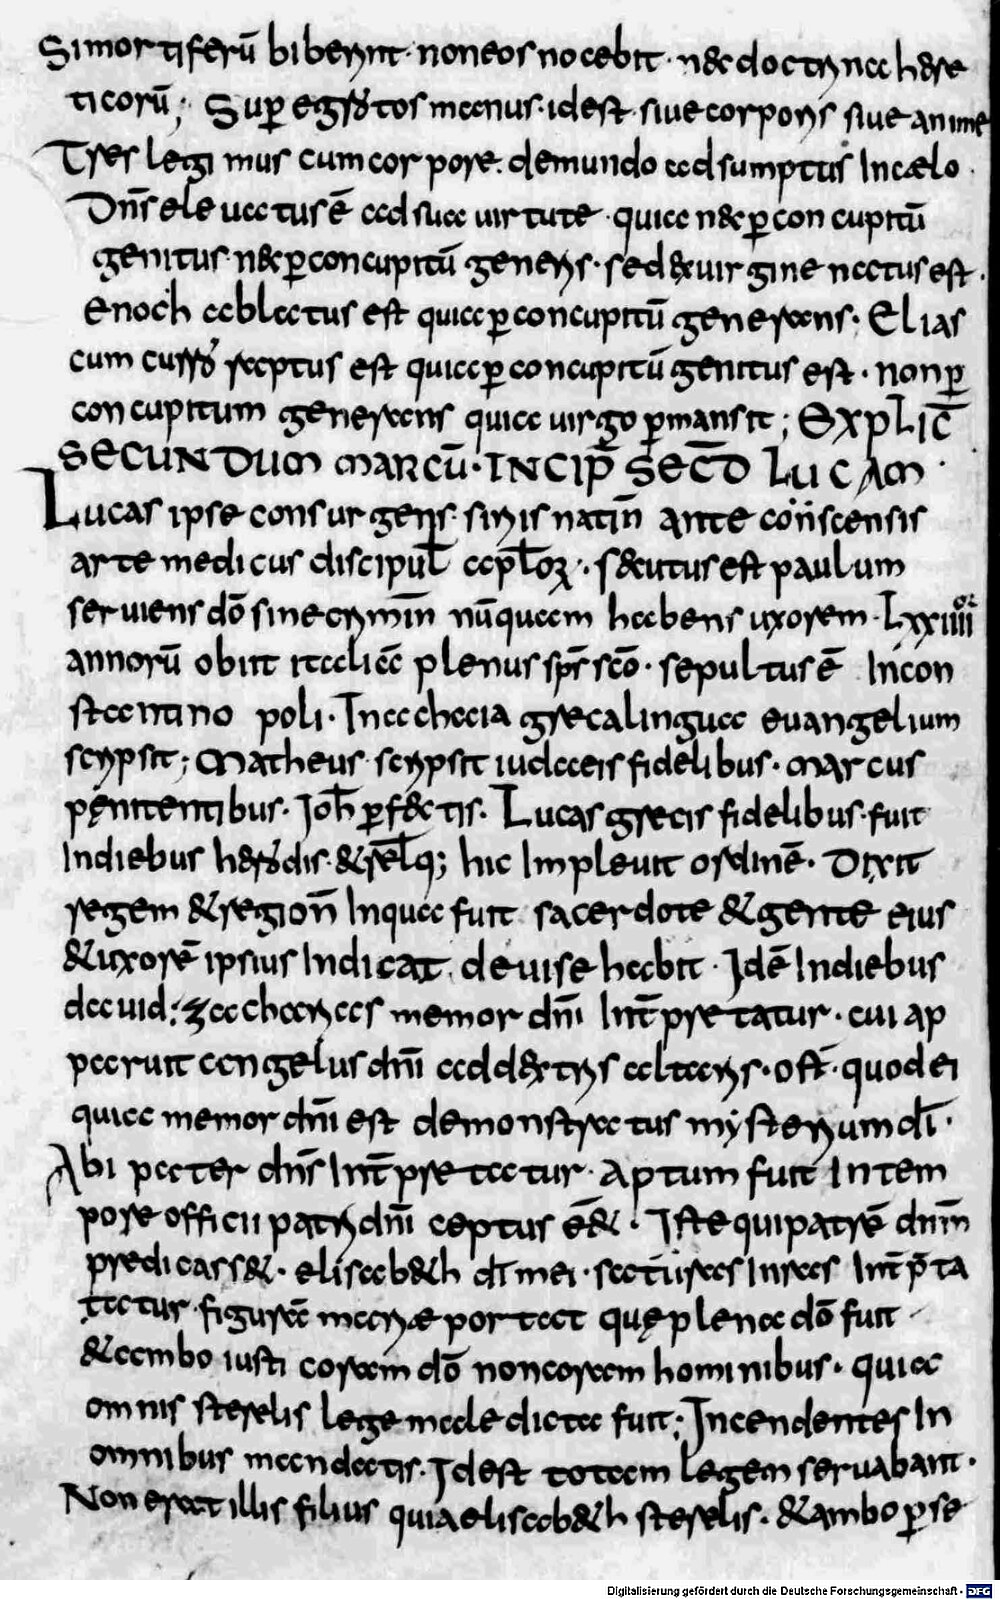 Si mortiferū biberint · non eos nocebit · nec doctrina here
ticorū; Super egrotos manus · id est · siue corporis siue anime
Tres legimus cum corpore · de mundo adsumptus In cælo ·
Dn̄s eleuatus ē ad sua uirtute · quia nec ꝑ concupitū
genitus · nec ꝑ concupitū generans · sed ex uirgine natus est ·
Enoch ablatus est quia ꝑ concupitū generans · Elias
cum curro raptus est quia ꝑ concupitū genitus est · non ꝑ
concupitum generans quia uirgo ꝑmansit; EXPLIC̄
SECUNDUM MARCŪ · INCIP̄ SEC̄D LUCAM ·
Lucas ipse consurgens · siris natiōn ante con̄scensis
arte medicus discipul̄ apl̄oꝝ · secutus est paulum
seruiens dō sine crimīn nūquam habens uxorem · Lxxiiii or
annorū obiit Italiā plenus spr̄ scō · sepultus ē In con
stantino poli · In achaia greca lingua euangelium
scripsit; Matheus scripsit iudaeis fidelibus · Marcus
pęnitentibus · Joh̄ ꝑfectis · Lucas grecis fidelibus · fuit
In diebus herodis · & rel̄q; hic Impleuit ordinē · Dixit
regem & region̄ In qua fuit sacerdote & gente eius
& uxorē ipsius Indicat · de uise habit · Idē In diebus
dauid; zacharias memor dn̄i Int̄pretatur · cui ap
paruit angelus dn̄i ad dextris altaris · ost̄ · quod ei
quia memor dn̄i est demonstratus mysterium dī ·
Abi pater dn̄s Int̄pretatur · Aptum fuit In tem
pore officii patri dn̄i ceptus ē& · Iste qui patrē dn̄m
predicass& · elisab&h dī mei · saturitas Int̄p̄ta
tatur figurā mariæ portat quę plena dō fuit
& ambo iusti coram dō non coram hominibus · quia
omnis sterelis lege maledicta fuit; Incendentes In
omnibus mandatis · Id est totam legem seruabant ·
Non erat illis filius quia elisab&h sterelis · & ambo ꝑse
Digitalisierung gefördert durch die Deutsche Forschungsgemeinschaft - DFG